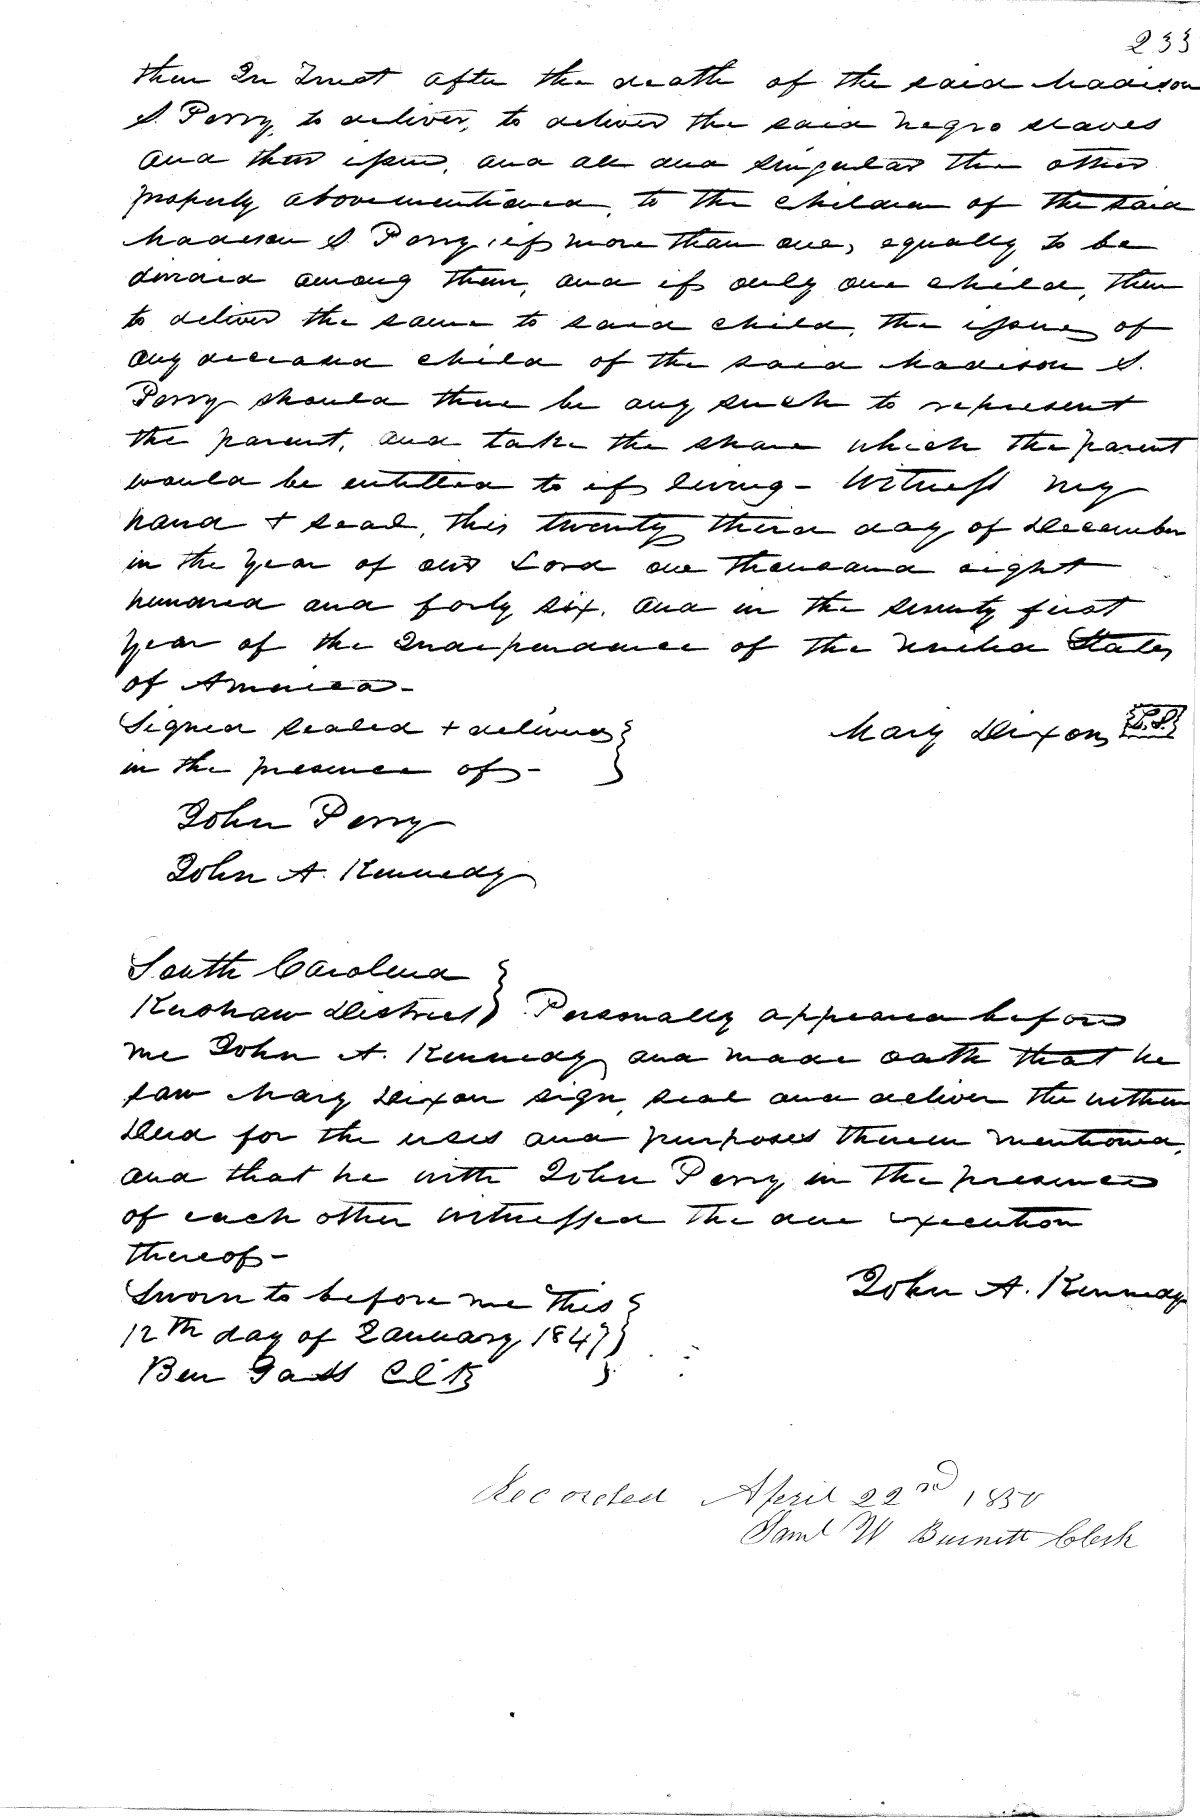 233
then In Trust after the death of the said Madison
S. Perry, to deliver, to deliver the said negro slaves
and their issue, and all and singular the other
property abovementioned, to the children of the said
Madison S Perry, if more than one, equally to be
divided among them, and if only one child, then
to deliver the same to said child, the issue of
any deceased child of the said Madison S.
Perry should there be any such to represent
the parent, and take the share which the parent
would be entitled to if living - Witness my
hand & seal, this twenty third day of December
in the Year of our Lord one thousand eight
hundred and forty six. and in the seventy first
Year of the Independence of the United States
of America -
Signed sealed & delivered
in the presence of -
Mary Dixon L.S.
John Perry
John A. Kennedy
South Carolina
Kershaw District Personally appeared before
me John A. Kennedy and made oath that he
saw Mary Dixon sign, seal and deliver the within
Deed for the uses and purposes therein mentioned,
and that he with John Perry in the presence
of each other witnessed the due execution
thereof -
John A. Kennedy
Sworn to before me this
12th day of January 1847
Ben Gass Cl K
Recorded April 22nd 1850
Saml W Burnett Clerk